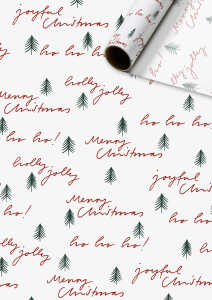 joyful
Christmas
ho ho ho
holly
jolly
Merry
Christmas
ho ho ho!
holly jolly
Merry
Christmas
ho ho ho
holly
jolly
joyful
Christmas
ho!
Merry
Christmas
ho ho
ho ho ho!
holly
jolly
Merry
Christmas
joyful
Christmas